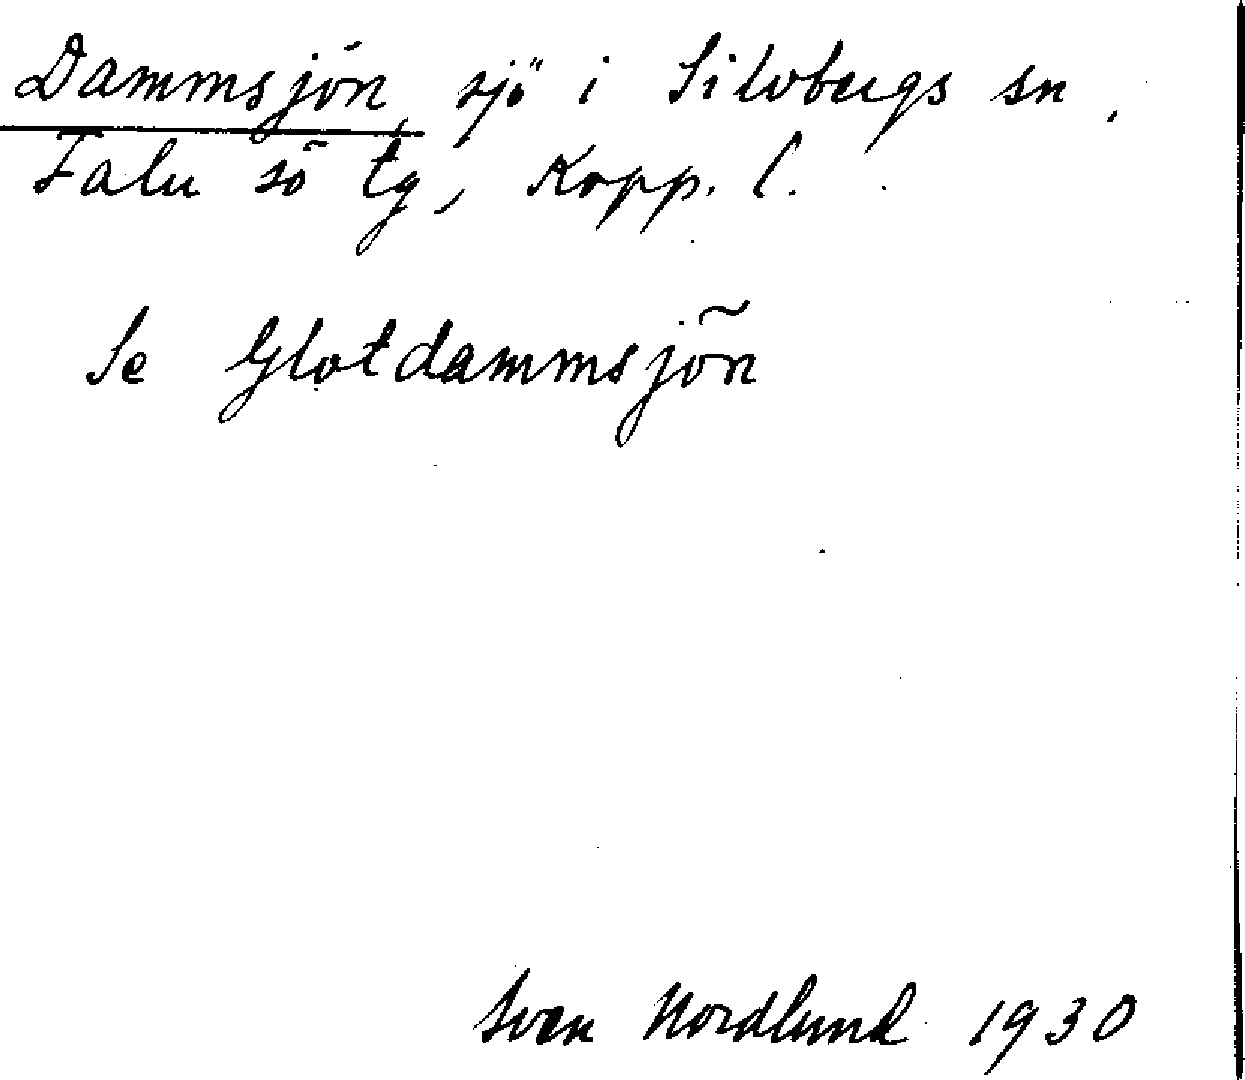 Dammsjön, sjö i Silvbergs sn,
Falu sö tg, Kopp. l.
Se Glotdammsjön
Sven Nordlund 1930